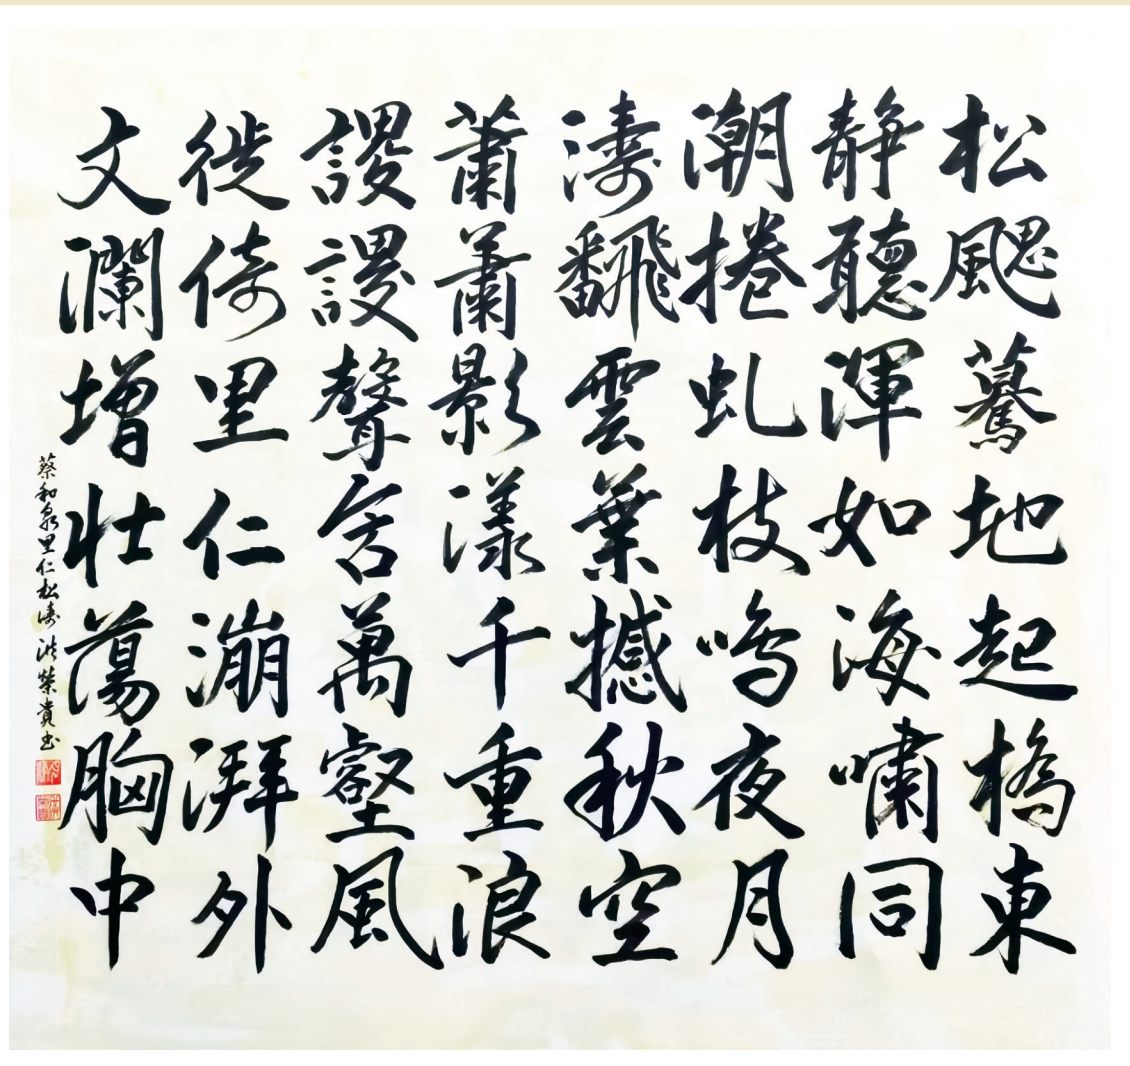 松颸驀地起橋東
靜聽渾如海嘯同
潮捲虬枝鳴夜月
濤翻雲葉撼秋空
蕭蕭影漾千重浪
謖謖聲含萬壑風
徙倚里仁漰湃外
文瀾增壯蕩胸中
蔡和泉里仁松濤 洪榮貴書